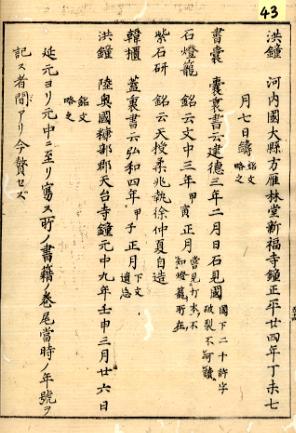 43
洪鐘　河内國大縣方雁林堂新福寺鐘正平廿四年丁未七
月七日鑄　銘文略之
書嚢　嚢裏書云建德三年二月日石見國　國下二十許字破裂不可讀
石燈籠　銘云文中三年甲寅正月　嘗見打本不知燈籠所在
紫石硯　銘云天授柔兆執徐仲夏自造
韓櫃　蓋裏書云弘和四年甲子正月　下文遺忘
洪鐘　陸奥國糠部郡天台寺鐘元中九年壬申三月廿六日
銘文略之
延元ヨリ元中ニ至リ寫ス所ノ書籍ノ卷尾當時ノ年號ヲ
記ス者間アリ今贅セズ